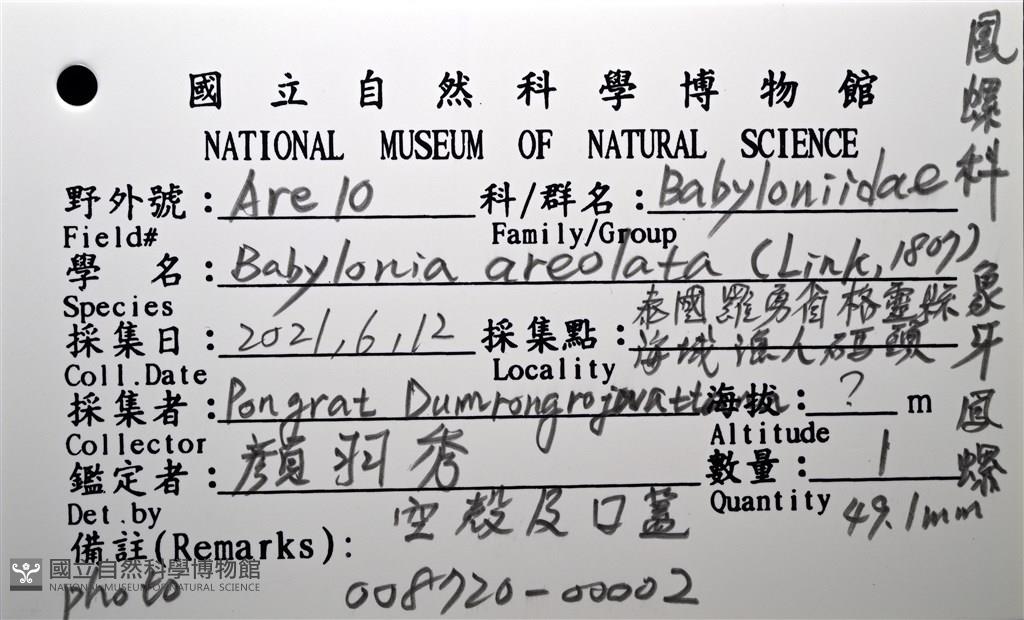 國立自然科學博物館
NATIONAL MUSEUM OF NATURAL SCIENCE
野外號：Are 10 科/群名：Babyloniidae
Field# Family/Group
學 名：Babylonia areolata (Link, 1807)
Species
泰國羅勇省格靈縣
採集日：2021,6,12 採集點：海域漁人碼頭
Coll.Date Locality
採集者：Pongrat 海拔：? m
Collector Altitude
鑑定者：顏羽秀 數量：1
Det.by Quantity 49.1mm
空殼及口蓋
備註(Remarks)：
photo 008720-00002
鳳螺科 象牙鳳螺
國立自然科學博物館
NATIONAL MUSEUM OF NATURAL SCIENCE